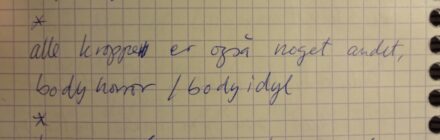 *
alle kroppe er også noget andet,
bodyhorror / bodyidyl
*